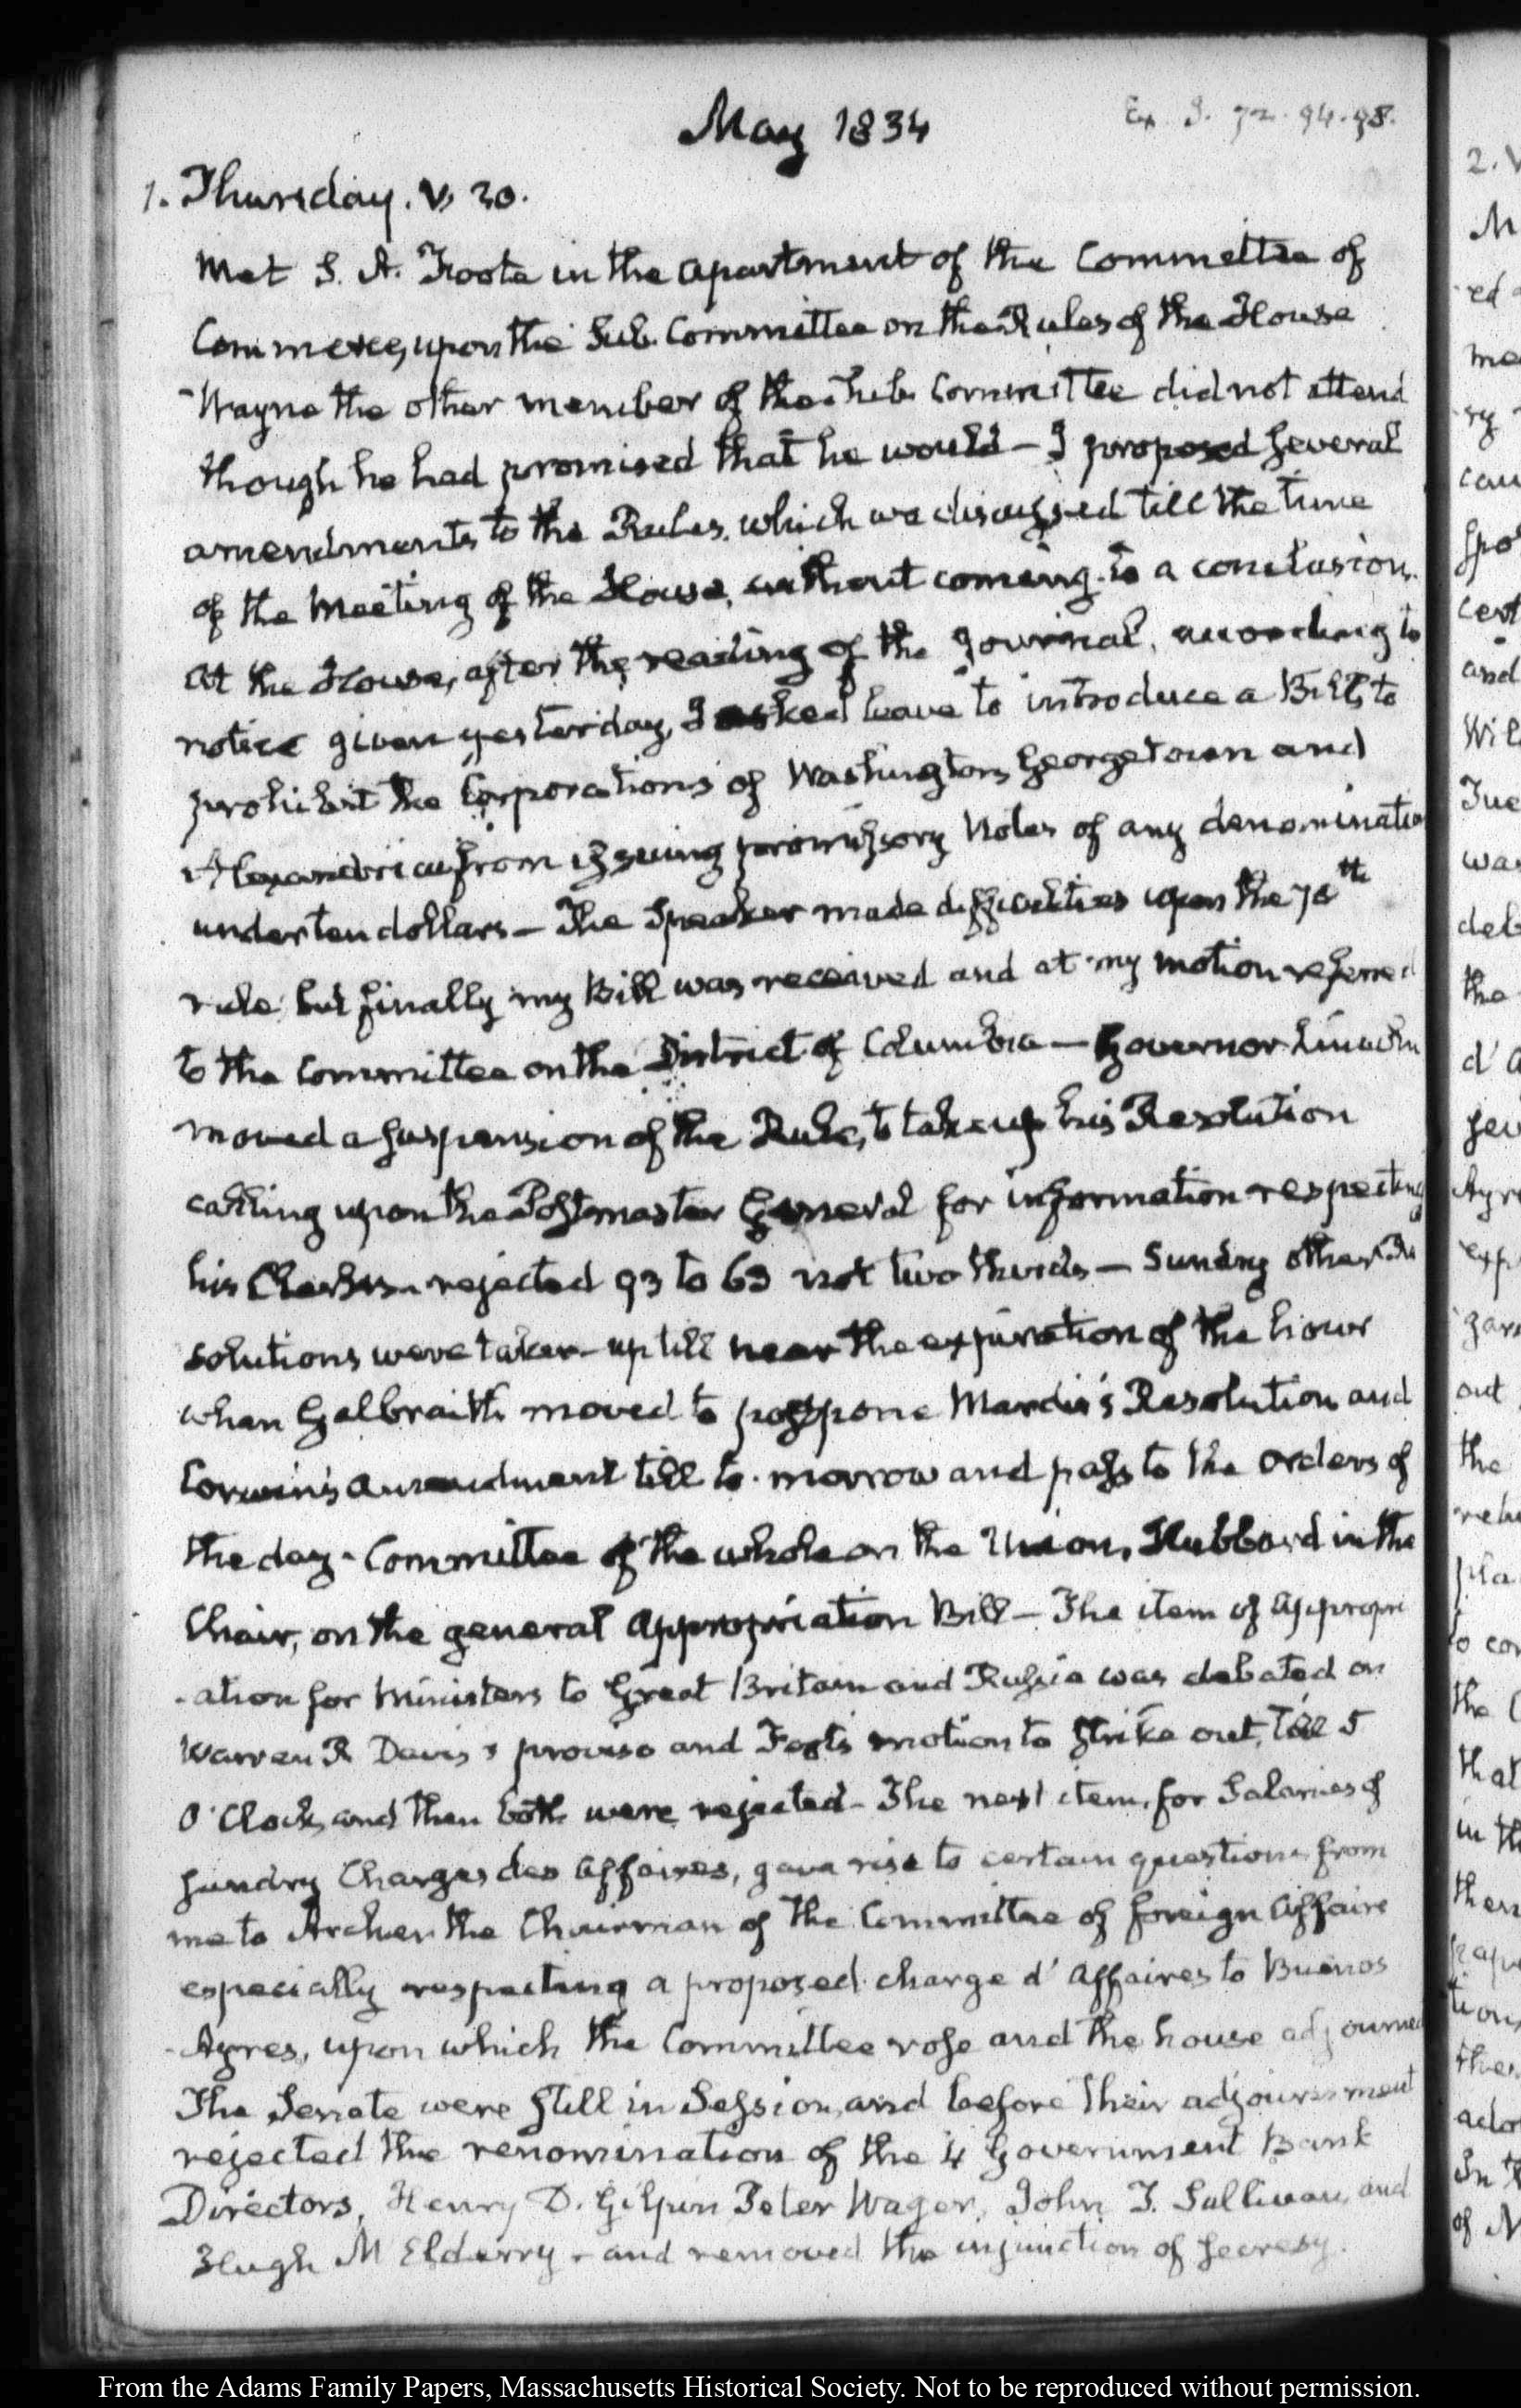 May 1834
1. Thursday. V. 30.
Met S. A. Foote in the apartment of the Committee of
Commerce, upon the Sub. Committee on the Rules of the House
Wayne the other member of the Sub Committee did not attend
though he had promised that he would — I proposed several
amendments to the Rules, which we discussed till the time
of the Meeting of the House, without coming to a conclusion.
At the House, after the reading of the Journal, according to
notice given yesterday, I asked leave to introduce a Bill, to
prohibit the Corporations of Washington, Georgetown and
Alexandria from issuing promissory Notes of any denomination
under ten dollars — The Speaker made difficulties upon the 76th
rule, but finally my Bill was received and at my motion referred
to the Committee on the District of Columbia — Governor Lincoln
moved a suspension of the Rule, to take up his Resolution
calling upon the Postmaster General for information respecting
his Clerks — rejected 93 to 63 not two thirds — Sundry other Re
solutions were taken up till near the expiration of the hour
when Galbraith moved to postpone Mardis's Resolution and
Corwin's amendment till to-morrow and pass to the orders of
the day — Committee of the whole on the Union, Hubbard in the
Chair, on the general Appropriation Bill — The item of appropri
-ation for Ministers to Great Britain and Russia was debated on
Warren R Davis's proviso and Foot's motion to strike out, till 5
O'Clock, and then both were rejected — The next item, for Salaries of
sundry Charges des affaires, gave rise to certain questions from
me to Archer the Chairman of the Committee of foreign Affairs
especially respecting a proposed charge d'Affaires to Buenos
-Ayres, upon which the Committee rose and the house adjourned
The Senate were still in Session, and before their adjournment
rejected the renomination of the 4 Government Bank
Directors, Henry D. Gilpin Peter Wager, John T. Sullivan, and
Hugh McElderry — and removed the injunction of secresy.
From the Adams Family Papers, Massachusetts Historical Society. Not to be reproduced without permission.